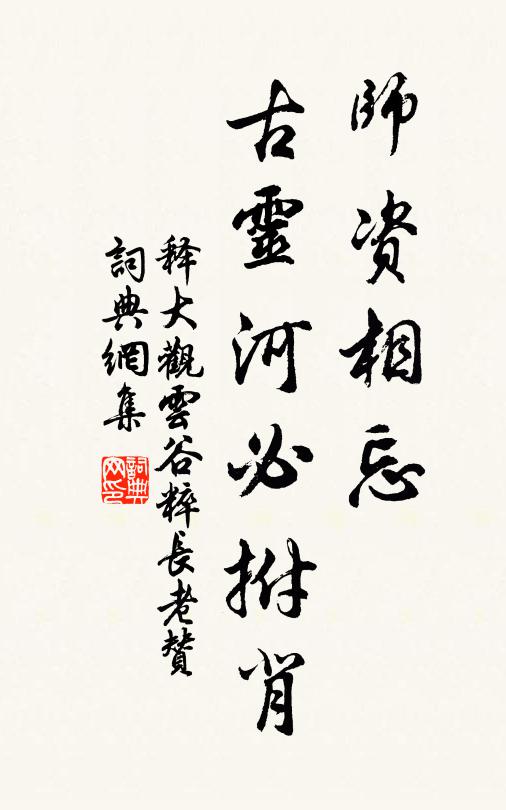 師资相忘
古靈河必拊肖
释大觀雲谷粹長老贊
詞典網集
詞典网印